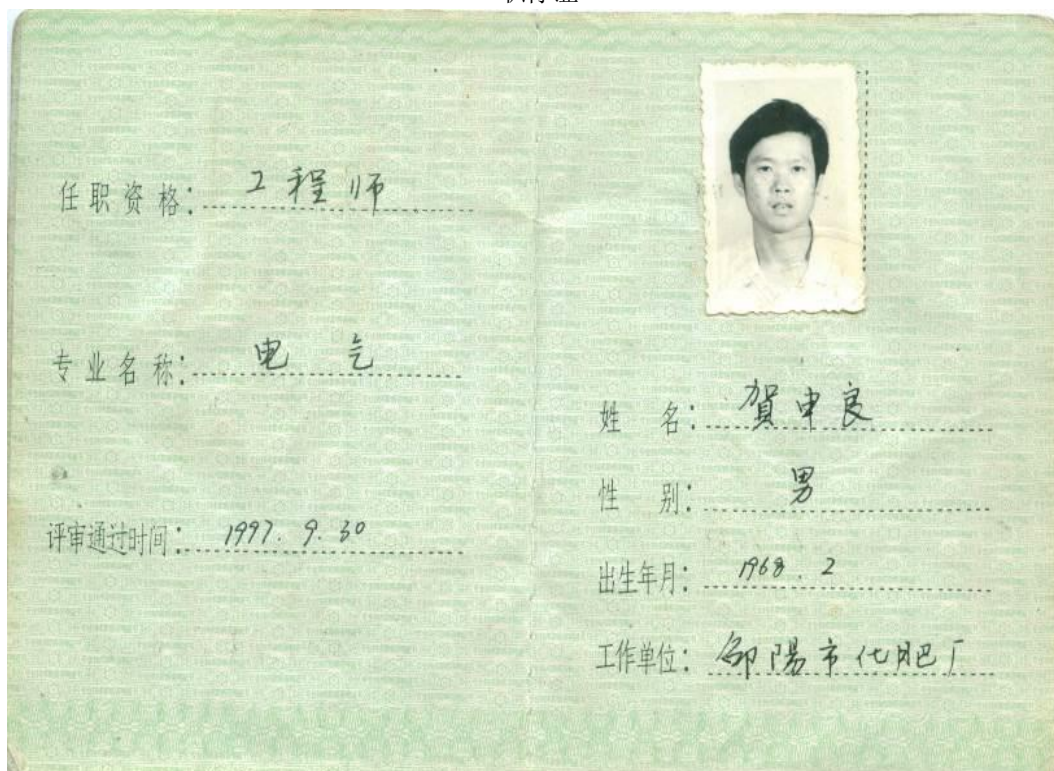 任职资格：工程师
专业名称：电气
评审通过时间：1997.9.30
姓名：賀申良
性别：男
出生年月：1968.2
工作单位：邵陽市化肥厂